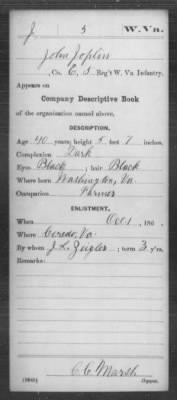 J 5 W. Va.
John Joplin
, Co. E, 5 Reg't W. Va. Infantry.
Appears on
Company Descriptive Book
of the organization named above.
DESCRIPTION.
Age 40 years; height 5 feet 7 inches.
Complexion Dark
Eyes Black ; hair Black
Where born Washington, Va.
Occupation Farmer
ENLISTMENT.
When Oct 1 , 186 .
Where Ceredo, Va.
By whom J. L. Zeigler ; term 3 y'rs.
Remarks:
C. C. Marsh
Copyist.